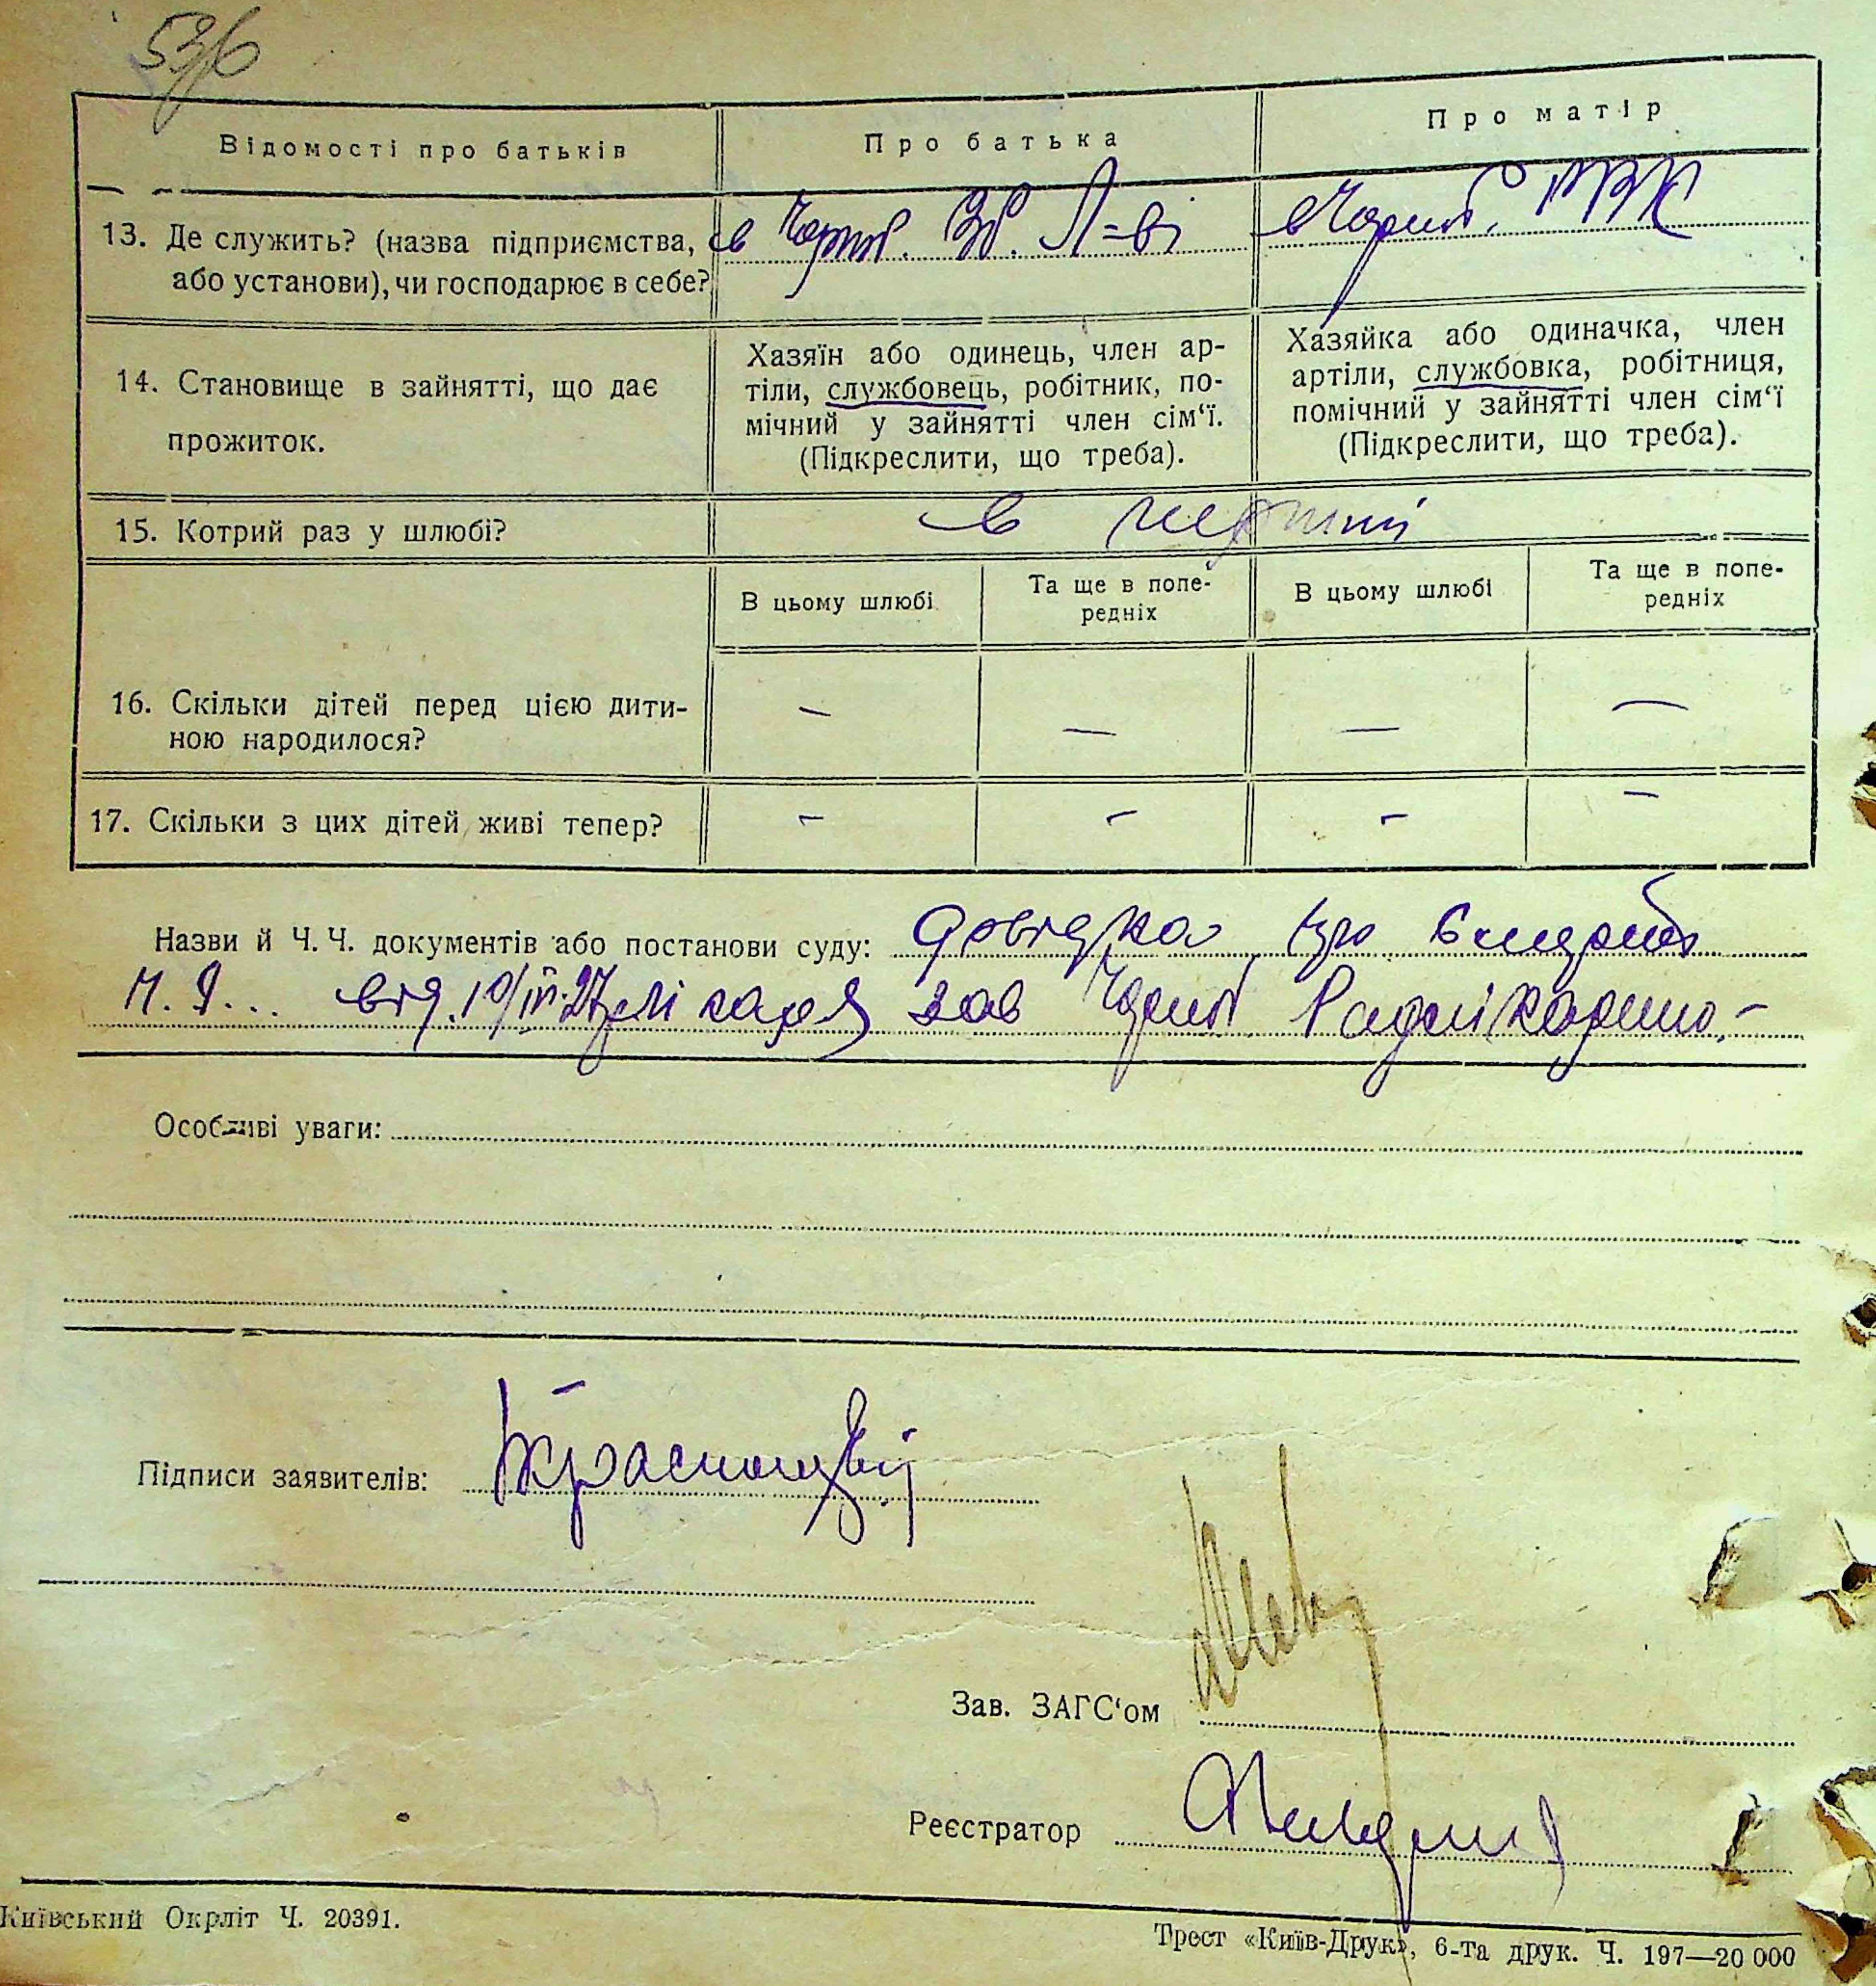 Відомості про батьків
Про батька
Про матір
13. Де служить? (назва підприємства,
або установи), чи господарює в себе?
в Чорноб.
в Чорноб. РВК
14. Становище в зайнятті, що дає
прожиток.
Хазяїн або одинець, член ар-
тіли, службовець, робітник, по-
мічний у зайнятті член сім‘ї.
(Підкреслити, що треба).
Хазяйка або одиначка, член
артіли, службовка, робітниця,
помічний у зайнятті член сім‘ї
(Підкреслити, що треба).
15. Котрий раз у шлюбі?
в перший
В цьому шлюбі
Та ще в попе-
редніх
В цьому шлюбі
Та ще в попе-
редніх
16. Скільки дітей перед цією дити-
ною народилося?
— — — —
17. Скільки з цих дітей живі тепер?
— — — —
Назви й Ч. Ч. документів або постанови суду: довідка про
від. лікаря зав Чорноб.
Особливі уваги:
Підписи заявителів:
Зав. ЗАГС‘ом
Реєстратор
Київський Окрліт Ч. 20391.
Трест «Київ-Друк», 6-та друк. Ч. 197—20 000